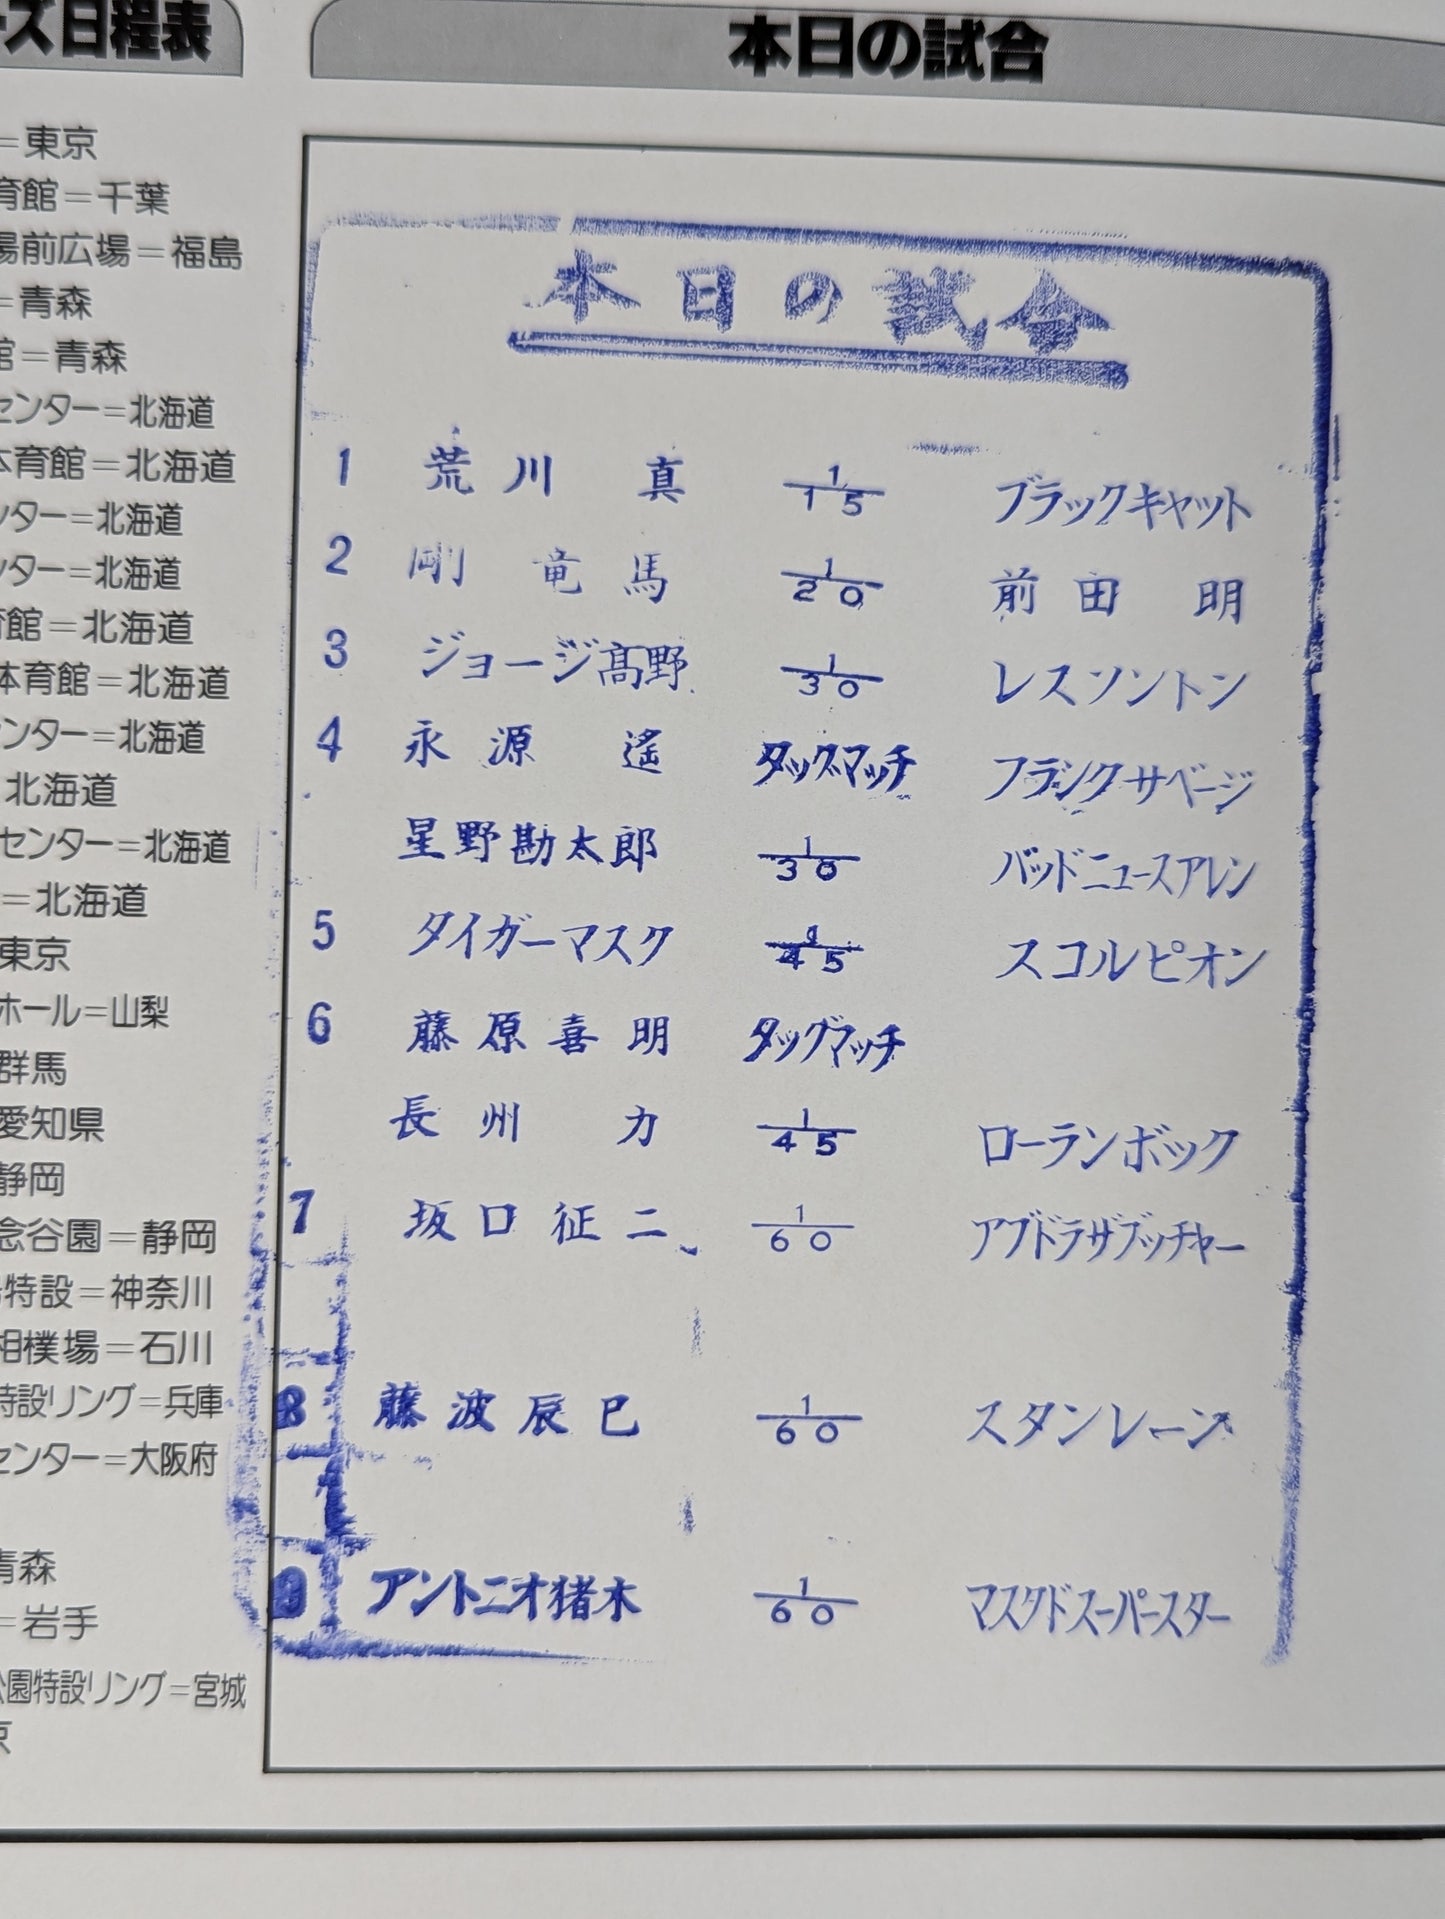 ーズ日程表
＝東京
育館＝千葉
場前広場＝福島
＝青森
館＝青森
センター＝北海道
体育館＝北海道
ンター＝北海道
ンター＝北海道
育館＝北海道
体育館＝北海道
ンター＝北海道
北海道
センター＝北海道
＝北海道
東京
ホール＝山梨
群馬
愛知県
静岡
念谷園＝静岡
特設＝神奈川
相撲場＝石川
特設リング＝兵庫
センター＝大阪府
青森
＝岩手
公園特設リング＝宮城
京
本日の試合
本日の試合
1 荒川 真 1/15 ブラックキャット
2 剛 竜馬 1/20 前田 明
3 ジョージ高野 1/30 レスソントン
4 永源 遙 タッグマッチ フランクサベージ
星野勘太郎 1/30 バッドニュースアレン
5 タイガーマスク 1/45 スコルピオン
6 藤原喜明 タッグマッチ
長州 力 1/45 ローランボック
7 坂口征二 1/60 アブドラザブッチャー
8 藤波辰巳 1/60 スタンレーン
9 アントニオ猪木 1/60 マスクドスーパースター